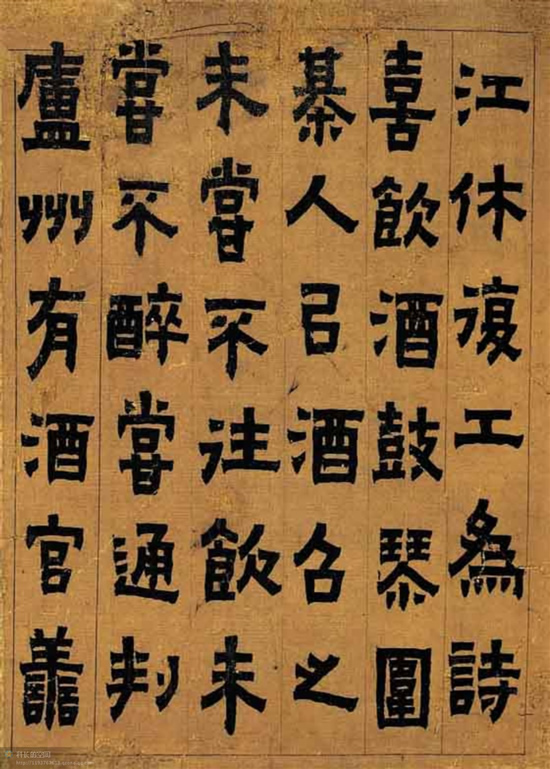 江休復工為詩
喜飲酒鼓琴圍
棊人㠯酒召之
未嘗不往飲未
嘗不醉嘗通判
廬州有酒官善